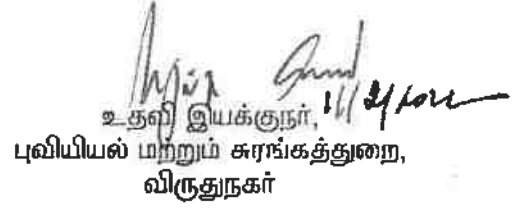 உதவி இயக்குநர்,
புவியியல் மற்றும் சுரங்கத்துறை,
விருதுநகர்